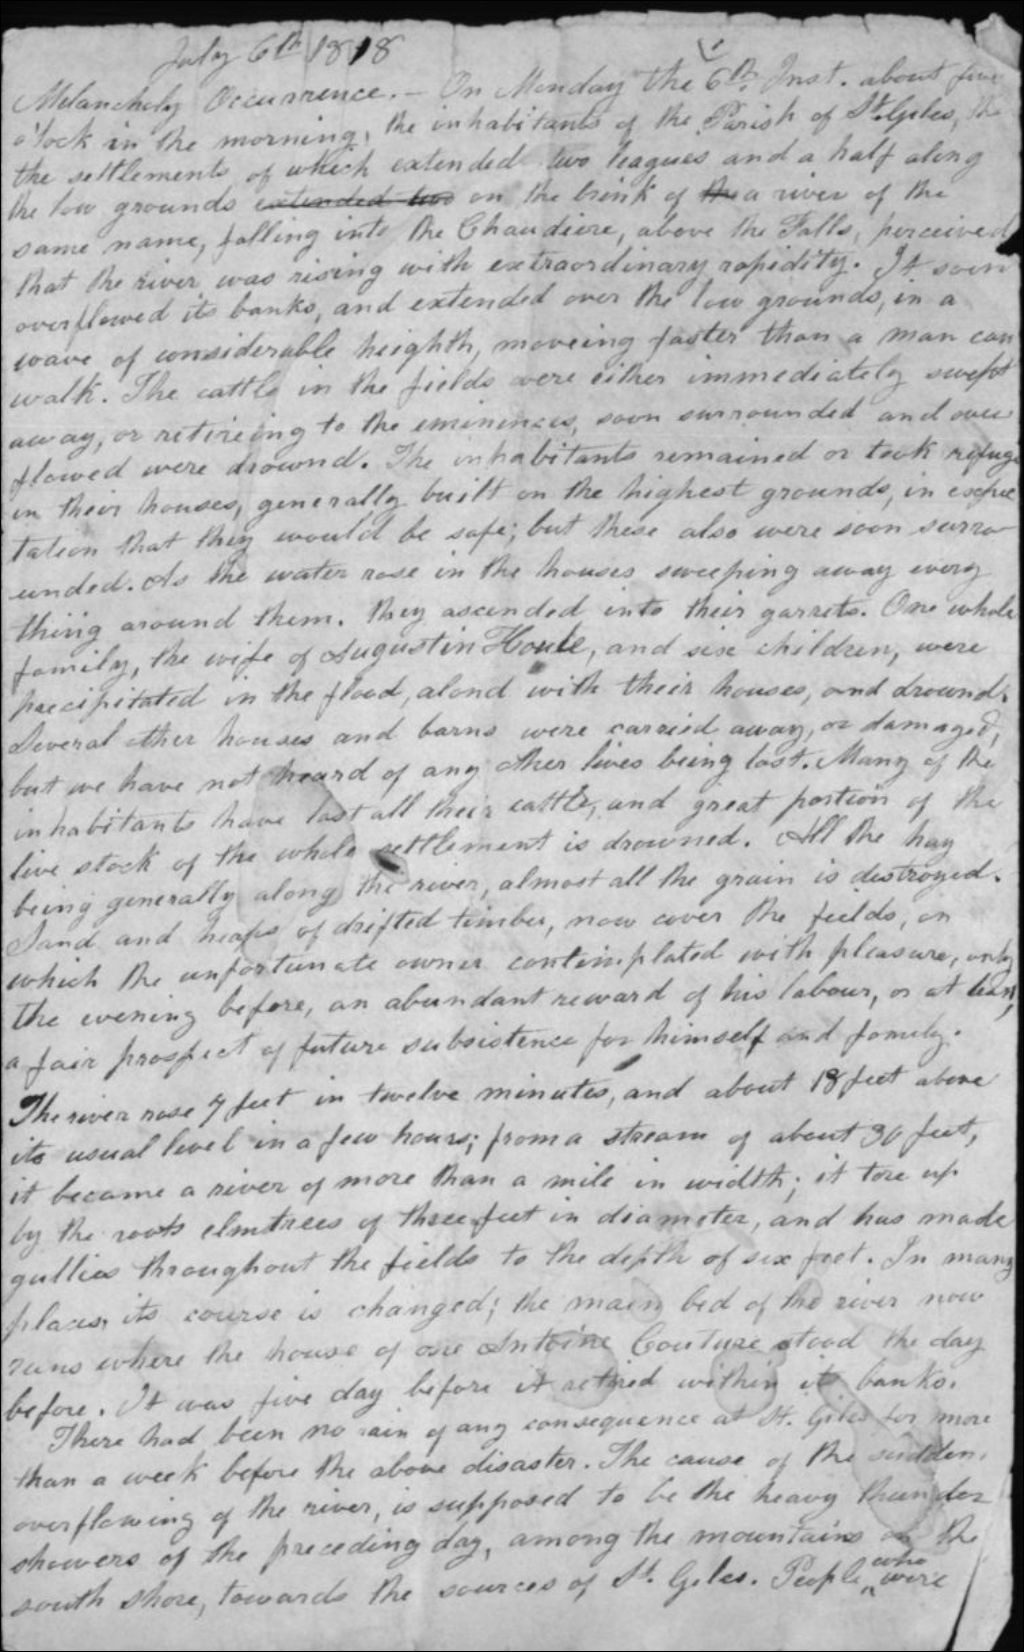 July 6th 1818
Melancholy Occurrence. - On Monday the 6th. Inst. about five
o'lock in the morning, the inhabitants of the Parish of St. Giles, the
the settlements of which extended two leagues and a half along
the low grounds extended two on the brink of the a river of the
same name, falling into the Chaudiere, above the Falls, perceived
that the river was rising with extraordinary rapidity. It soon
overflowed its banks, and extended over the low grounds, in a
wave of considerable heighth, moveing faster than a man can
walk. The cattle in the fields were either immediately swept
away, or retireing to the eminences, soon surrounded and over
flowed were drownd. The inhabitants remained or took refuge
in their houses, generally built on the highest grounds, in expec
tation that they would be safe; but these also were soon surro-
unded. As the water rose in the houses sweeping away every
thing around them. they ascended into their garrets. One whole
family, the wife of Augustin Houle, and six children, were
precipitated in the flood, alond with their houses, and drownd.
Several other houses and barns were carried away, or damaged,
but we have not heard of any other lives being lost. Many of the
inhabitants have lost all their cattle, and great portion of the
live stock of the whole settlement is drowned. All the hay
being generally along the river, almost all the grain is destroyed.
Sand and heaps of drifted timber, now cover the fields, on
which the unfortunate owner contimplated with pleasure, only
the evening before, an abundant reward of his labour, or at least,
a fair prospect of future subsistence for himself and family.
The river rose 7 feet in twelve minutes, and about 18 feet above
its usual level in a few hours; from a stream of about 30 feet,
it became a river of more than a mile in width; it tore up
by the roots elmtrees of three feet in diameter, and has made
gullies throughout the fields to the depth of six feet. In many
places, its course is changed; the main bed of the river now
runs where the house of one Antoine Couture stood the day
before. It was five day before it retired within its banks.
There had been no rain of any consequence at St. Giles for more
than a week before the above disaster. The cause of the sudden
overflowing of the river, is supposed to be the heavy thunder
showers of the preceding day, among the mountains on the
south shore, towards the sources of St. Giles. People who were